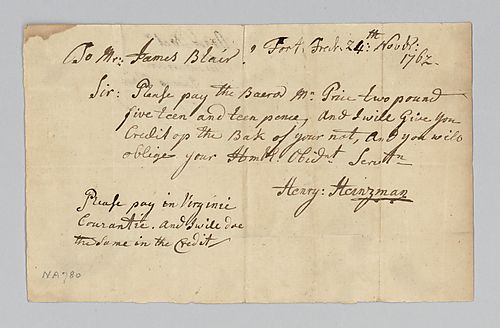 To Mr: James Blair. Fort Fredr: 24:th Novbr:
1762
Sir: Please pay the Baerer Mr. Price two pound
fiveteen and teen pence, And I will Give you
Credit op the Bak of your not, And you will
oblige your Hmbl. Obidnt Servtn
Henry: Heinzman
Please pay in Virginie
Courantie. And I wile doe
the Same in the Credit
N.A. 780